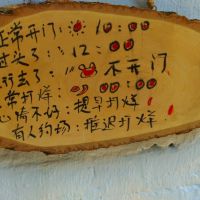 正常开门：10:00
过头了：12:00
行去了：不开门
常打烊：00:00
心情不好：提早打烊
有人约场：推迟打烊